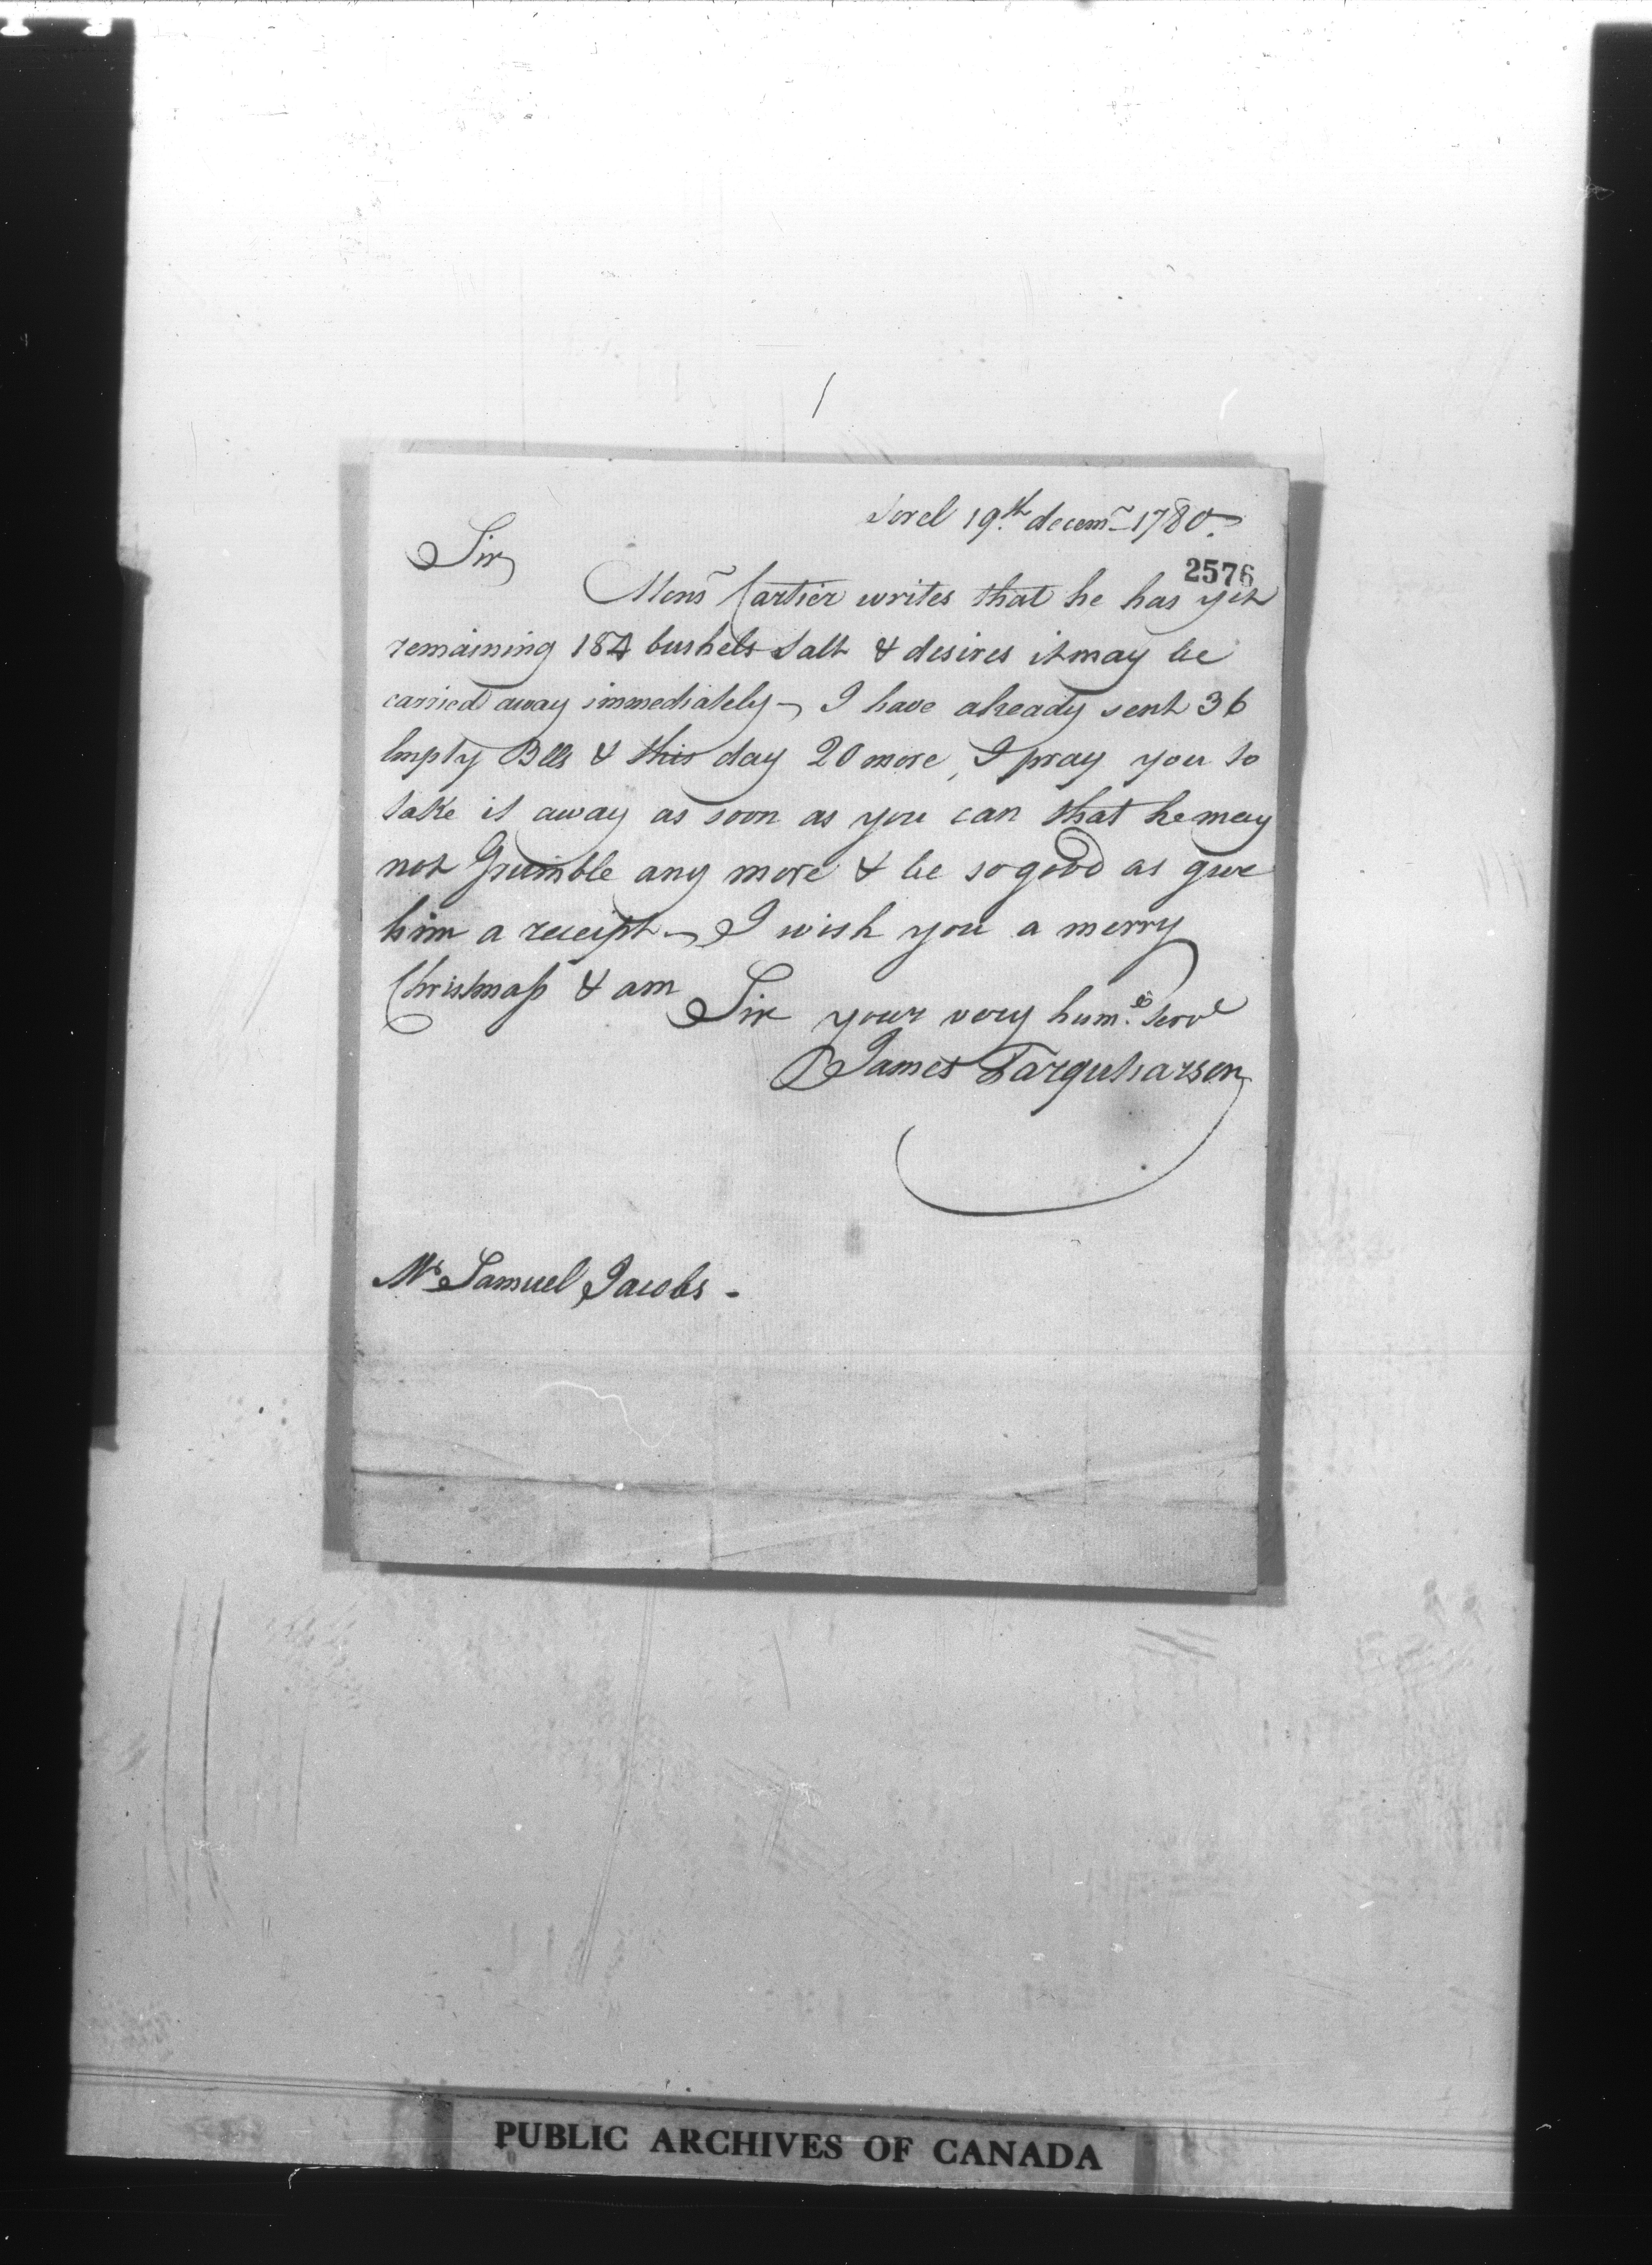 Sorel 19.th decemr 1780.
2576
Sir
Monsr Cartier writes that he has yet
remaining 184 bushels Salt & desires it may be
carried away immediately - I have already sent 36
Empty Blls & this day 20 more, I pray you to
take it away as soon as you can that he may
not Grumble any more & be so good as give
him a receipt - I wish you a merry
Christmass & am
Sir your very hum.e Serv.t
James Farquharson
Mr Samuel Jacobs -
PUBLIC ARCHIVES OF CANADA